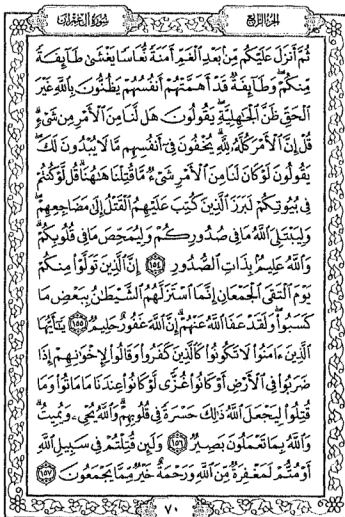 الجزء الرابع
سورة آل عمران
ثُمَّ أَنزَلَ عَلَيْكُم مِّنۢ بَعْدِ ٱلْغَمِّ أَمَنَةً نُّعَاسًا يَغْشَىٰ طَآئِفَةً
مِّنكُمْ وَطَآئِفَةٌ قَدْ أَهَمَّتْهُمْ أَنفُسُهُمْ يَظُنُّونَ بِٱللَّهِ غَيْرَ
ٱلْحَقِّ ظَنَّ ٱلْجَٰهِلِيَّةِ يَقُولُونَ هَل لَّنَا مِنَ ٱلْأَمْرِ مِن شَىْءٍ
قُلْ إِنَّ ٱلْأَمْرَ كُلَّهُۥ لِلَّهِ يُخْفُونَ فِىٓ أَنفُسِهِم مَّا لَا يُبْدُونَ لَكَ
يَقُولُونَ لَوْ كَانَ لَنَا مِنَ ٱلْأَمْرِ شَىْءٌ مَّا قُتِلْنَا هَٰهُنَا قُل لَّوْ كُنتُمْ
فِى بُيُوتِكُمْ لَبَرَزَ ٱلَّذِينَ كُتِبَ عَلَيْهِمُ ٱلْقَتْلُ إِلَىٰ مَضَاجِعِهِمْ
وَلِيَبْتَلِىَ ٱللَّهُ مَا فِى صُدُورِكُمْ وَلِيُمَحِّصَ مَا فِى قُلُوبِكُمْ
وَٱللَّهُ عَلِيمٌۢ بِذَاتِ ٱلصُّدُورِ ١٥٤ إِنَّ ٱلَّذِينَ تَوَلَّوْا۟ مِنكُمْ
يَوْمَ ٱلْتَقَى ٱلْجَمْعَانِ إِنَّمَا ٱسْتَزَلَّهُمُ ٱلشَّيْطَٰنُ بِبَعْضِ مَا
كَسَبُوا۟ وَلَقَدْ عَفَا ٱللَّهُ عَنْهُمْ إِنَّ ٱللَّهَ غَفُورٌ حَلِيمٌ ١٥٥ يَٰٓأَيُّهَا
ٱلَّذِينَ ءَامَنُوا۟ لَا تَكُونُوا۟ كَٱلَّذِينَ كَفَرُوا۟ وَقَالُوا۟ لِإِخْوَٰنِهِمْ إِذَا
ضَرَبُوا۟ فِى ٱلْأَرْضِ أَوْ كَانُوا۟ غُزًّى لَّوْ كَانُوا۟ عِندَنَا مَا مَاتُوا۟ وَمَا
قُتِلُوا۟ لِيَجْعَلَ ٱللَّهُ ذَٰلِكَ حَسْرَةً فِى قُلُوبِهِمْ وَٱللَّهُ يُحْىِۦ وَيُمِيتُ
وَٱللَّهُ بِمَا تَعْمَلُونَ بَصِيرٌ ١٥٦ وَلَئِن قُتِلْتُمْ فِى سَبِيلِ ٱللَّهِ
أَوْ مُتُّمْ لَمَغْفِرَةٌ مِّنَ ٱللَّهِ وَرَحْمَةٌ خَيْرٌ مِّمَّا يَجْمَعُونَ ١٥٧
٧٠